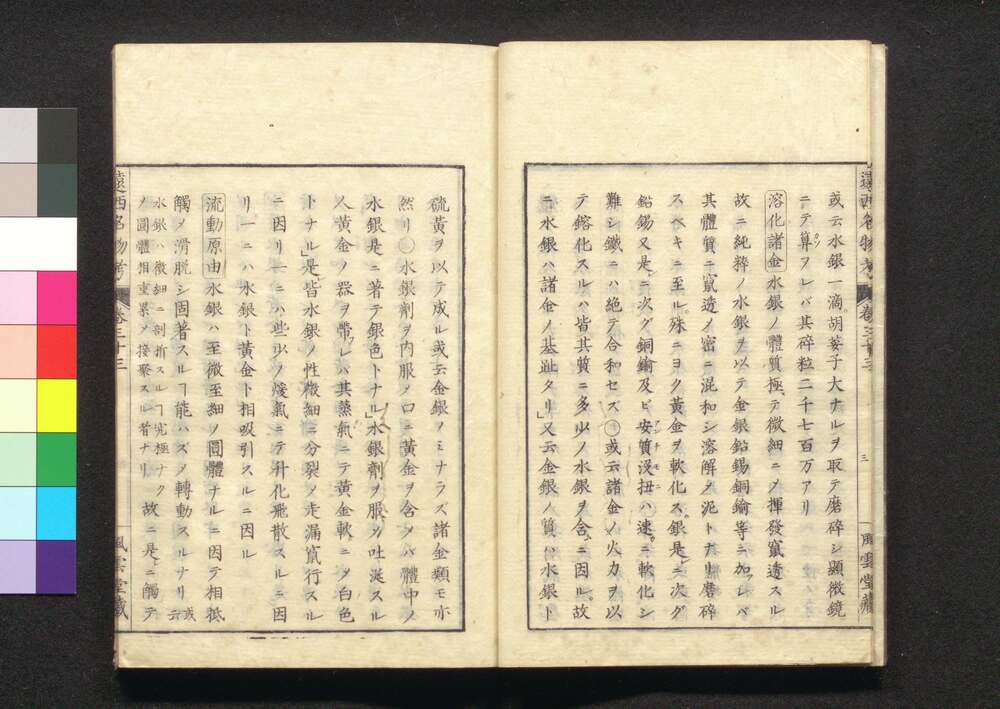 遠西名物考 卷三十三 三 風雲堂藏
或云水銀一滴胡荽子大ナルヲ取テ磨碎シ顯微鏡
ニテ算ヲレバ其碎粒二千七百万アリ
溶化諸金 水銀ノ體質極テ微細ニノ揮發竄透スル
故ニ純粹ノ水銀ヲ以テ金銀鉛錫銅鍮等ニ加レバ
其體質ニ竄透ノ密ニ混和シ溶解ノ泥トナリ磨碎
スベキニ至ル殊ニヨク黃金ヲ軟化ス銀是ニ次グ
鉛錫又是ニ次グ銅鍮及ビ安質沒扭ハ速ニ軟化シ
難シ鐵ニハ絶テ合和セズ○或云諸金ノ火力ヲ以
テ鎔化スルハ皆其質ニ多少ノ水銀ヲ含ニ因ル故
ニ水銀ハ諸金ノ基趾タリ」又云金銀ノ質ハ水銀ト
硫黃ヲ以テ成ル或云金銀ノミナラズ諸金類モ亦
然リ○水銀劑ヲ内服ノ口ニ黃金ヲ含メバ體中ノ
水銀是ニ著テ銀色トナル」水銀劑ヲ服メ吐涎スル
人黃金ノ器ヲ帶レバ其蒸氣ニテ黃金軟ニメ白色
トナル」是皆水銀ノ性微細ニ分裂メ走漏竄行スル
ニ因リ一ニハ些少ノ煖氣ニテ升化飛散スルニ因
リ一ニハ水銀ト黃金ト相吸引スルニ因ル
流動原由 水銀ハ至微至細ノ圓體ナルニ因テ相抵
觸メ滑脱シ固着スルヿ能ハズメ轉動スルナリ 或云
水銀ハ微細ニ剖拆スルヿ究極ナク
ノ圓體相重累メ接聚スル者ナリ 故ニ是ニ觸テ
遠西名物考 卷三十三 風雲堂藏